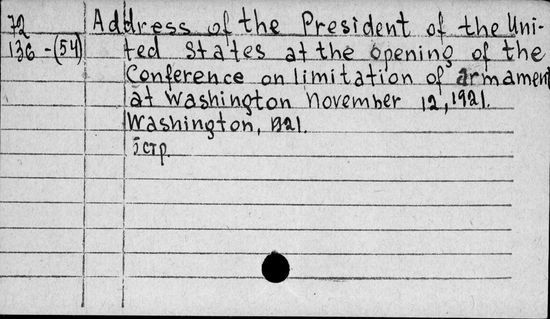 72 Address of the President of the Uni-
136-(54) ted States at the opening of the
Conference on limitation of armament
at Washington November 12, 1921.
Washington, 1921.
5 стр.